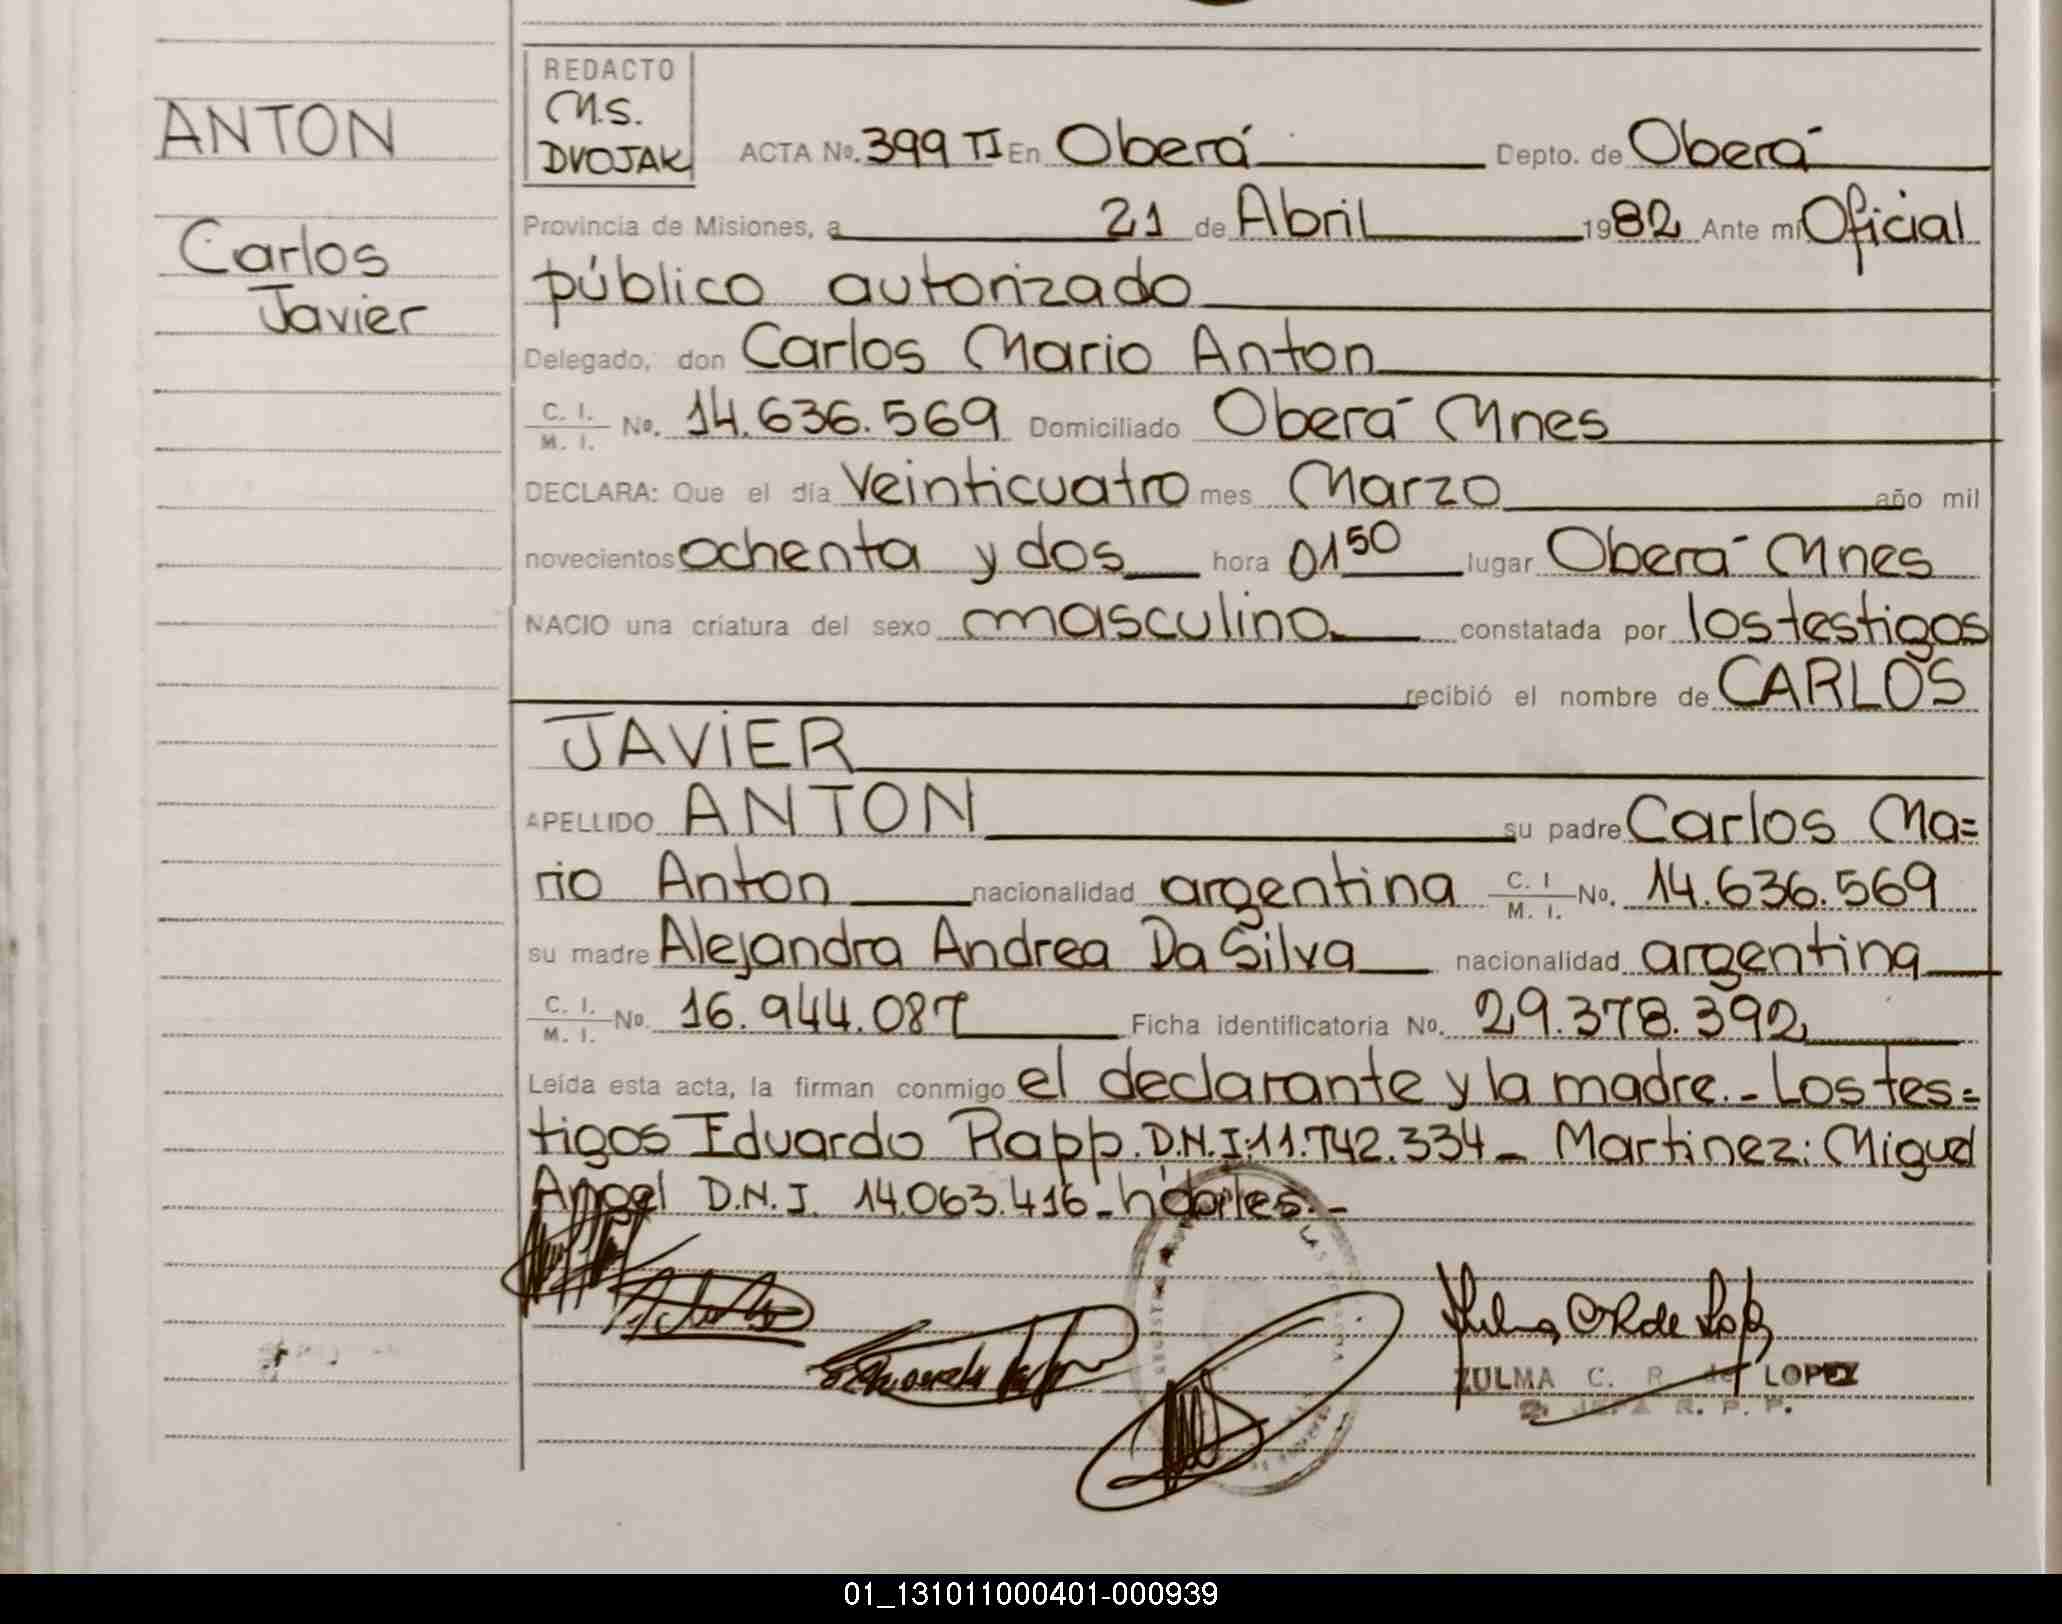 ANTON
Carlos
Javier
REDACTO
M.S.
DVOJAK
ACTA No. 399 TI En Oberá Depto. de Oberá
Provincia de Misiones, a 21 de Abril 1982 Ante mi Oficial
público autorizado
Delegado, don Carlos Mario Anton
C. I. / M. I. No. 14.636.569 Domiciliado Oberá Mnes
DECLARA: Que el día Veinticuatro mes Marzo año mil
novecientos ochenta y dos hora 01 50 lugar Oberá Mnes
NACIO una criatura del sexo masculino constatada por los testigos
recibió el nombre de CARLOS
JAVIER
APELLIDO ANTON su padre Carlos Ma=
rio Anton nacionalidad argentina C. I / M. I. No. 14.636.569
su madre Alejandra Andrea Da Silva nacionalidad argentina
C. I. / M. I. No. 16.944.087 Ficha identificatoria No. 29.378.392
Leída esta acta, la firman conmigo el declarante y la madre.- Los tes=
tigos Eduardo Rapp. D.N.I: 11.742.334 - Martinez: Miguel
Angel D.N.I. 14.063.416 - hábiles.-
ZULMA C. R. de LOPEZ
JEFA R. P. P.
01_131011000401-000939